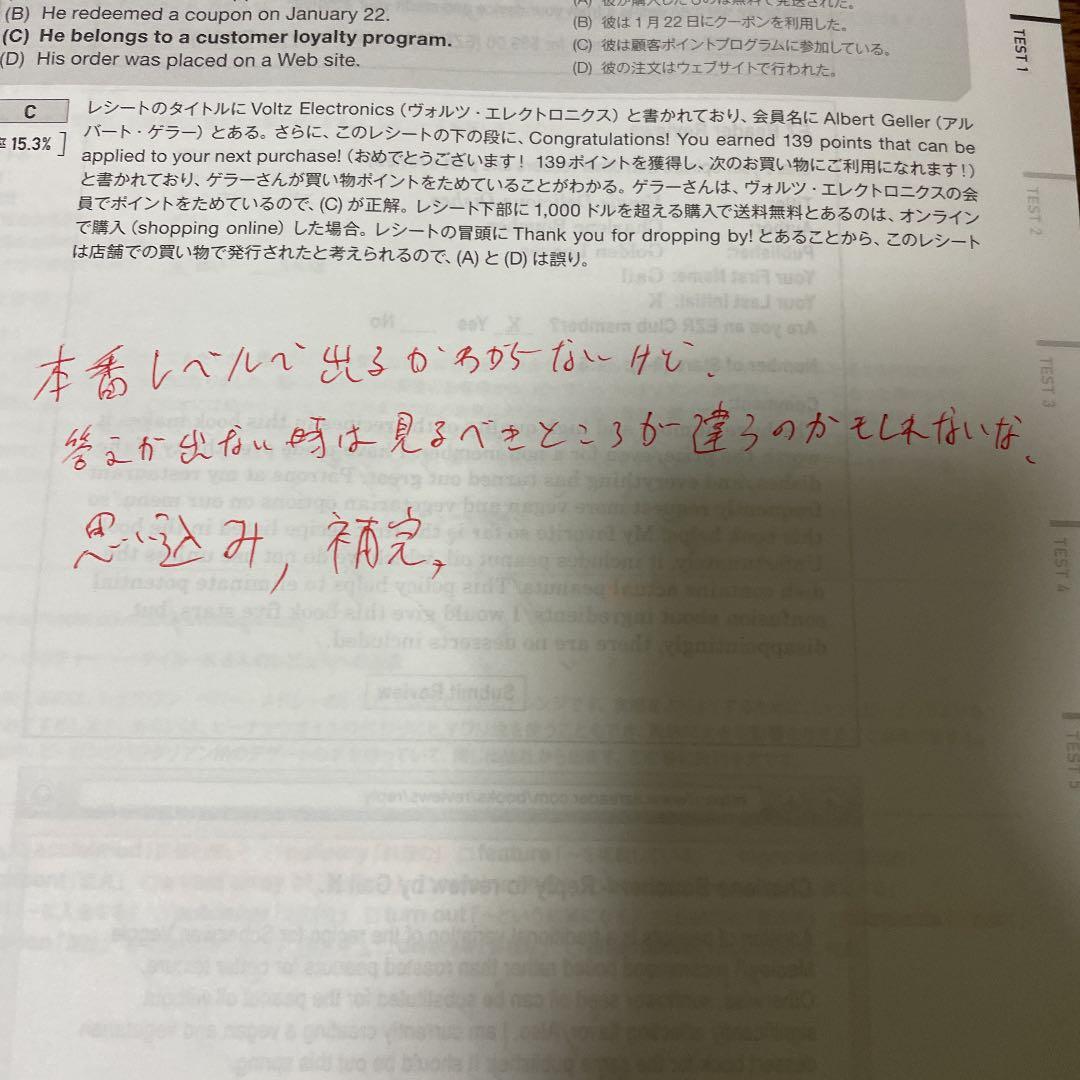 (B) He redeemed a coupon on January 22.
(C) He belongs to a customer loyalty program.
(D) His order was placed on a Web site.
(B) 彼は1月22日にクーポンを利用した。
(C) 彼は顧客ポイントプログラムに参加している。
(D) 彼の注文はウェブサイトで行われた。
C
15.3%
レシートのタイトルに Voltz Electronics（ヴォルツ・エレクトロニクス）と書かれており、会員名に Albert Geller（アル
バート・ゲラー）とある。さらに、このレシートの下の段に、Congratulations! You earned 139 points that can be
applied to your next purchase!（おめでとうございます！ 139ポイントを獲得し、次のお買い物にご利用になれます！）
と書かれており、ゲラーさんが買い物ポイントをためていることがわかる。ゲラーさんは、ヴォルツ・エレクトロニクスの会
員でポイントをためているので、(C) が正解。レシート下部に 1,000 ドルを超える購入で送料無料とあるのは、オンライン
で購入（shopping online）した場合。レシートの冒頭に Thank you for dropping by! とあることから、このレシート
は店舗での買い物で発行されたと考えられるので、(A) と (D) は誤り。
本番レベルで出るかわからないけど、
答えが出ない時は見るべきところが違うのかもしれないな、
思い込み, 補完,
TEST 1
TEST 2
TEST 3
TEST 4
TEST 5